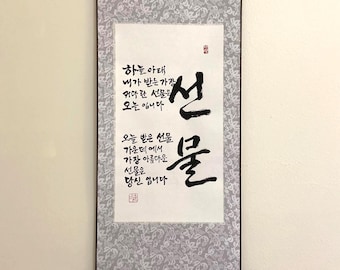 선물
하늘 아래
내가 받는 가장
커다란 선물은
오늘 입니다
오늘 받은 선물
가운데에서
가장 아름다운
선물은
당신 입니다